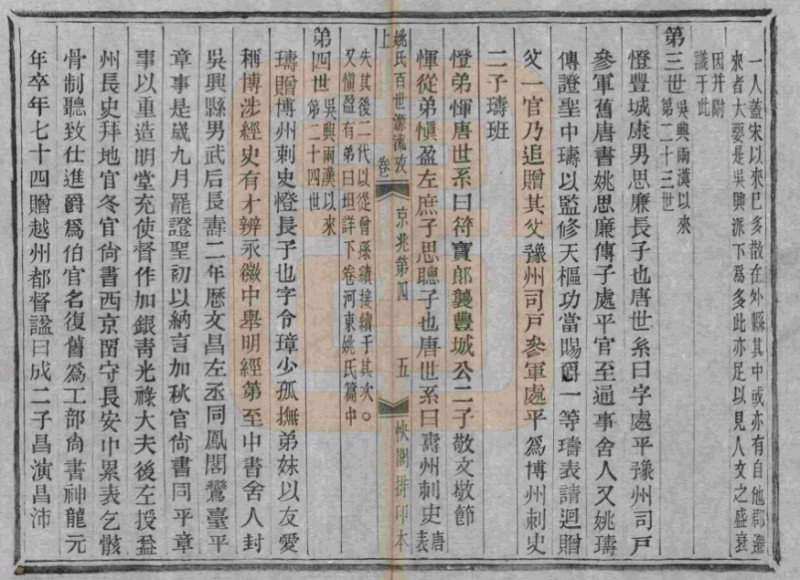 一人蓋宋以來已多散在外縣其中或亦有自他郡遷
來者大要是吳興派下為多此亦足以見人文之盛衰
因并附
議于此
第三世吳興兩漢以來
第二十三世
憕豐城康男思廉長子也唐世系曰字處平豫州司戶
參軍舊唐書姚思廉傳子處平官至通事舍人又姚璹
傳證聖中璹以監修天樞功當賜爵一等璹表請迴贈
父一官乃追贈其父豫州司戶參軍處平為博州刺史
二子璹班
憕弟惲唐世系曰符寶郎襲豐城公二子敬文敬節
惲從弟愼盈左庶子思聰子也唐世系曰壽州刺史唐
表
姚氏百世源流攷 卷上 京兆第四 五 快閣排印本
失其後二代以從曾孫續接續于其次。
又愼盈有弟曰坦詳下卷河東姚氏篇中
第四世吳興兩漢以來
第二十四世
璹贈博州刺史憕長子也字令璋少孤撫弟妹以友愛
稱博涉經史有才辨永徽中舉明經第至中書舍人封
吳興縣男武后長壽二年歷文昌左丞同鳳閣鸞臺平
章事是歲九月罷證聖初以納言加秋官尚書同平章
事以重造明堂充使督作加銀青光祿大夫後左授益
州長史拜地官冬官尚書西京留守長安中累表乞骸
骨制聽致仕進爵為伯官名復舊為工部尚書神龍元
年卒年七十四贈越州都督諡曰成二子昌演昌沛